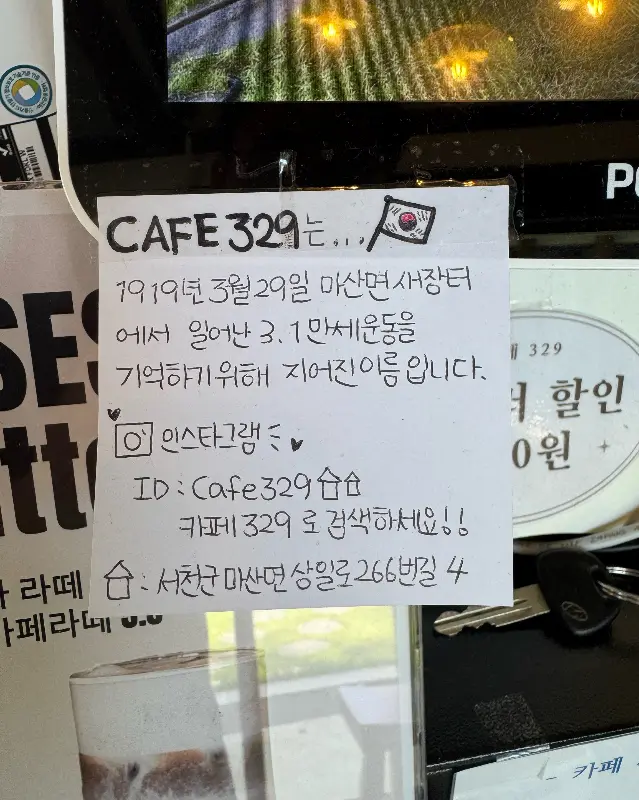 CAFE 329는...
1919년 3월 29일 마산면 새장터
에서 일어난 3.1 만세운동을
기억하기 위해 지어진 이름입니다.
인스타그램
ID : Cafe329
카페329 로 검색하세요!!
: 서천군 마산면 상일로 266번길 4
329
할인
0원
라떼
카페라떼
카페